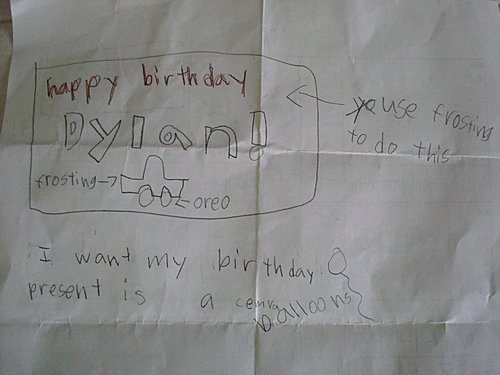 happy birthday
Dylan!
use frosting
to do this
frosting
oreo
I want my birthday
present is a
balloons